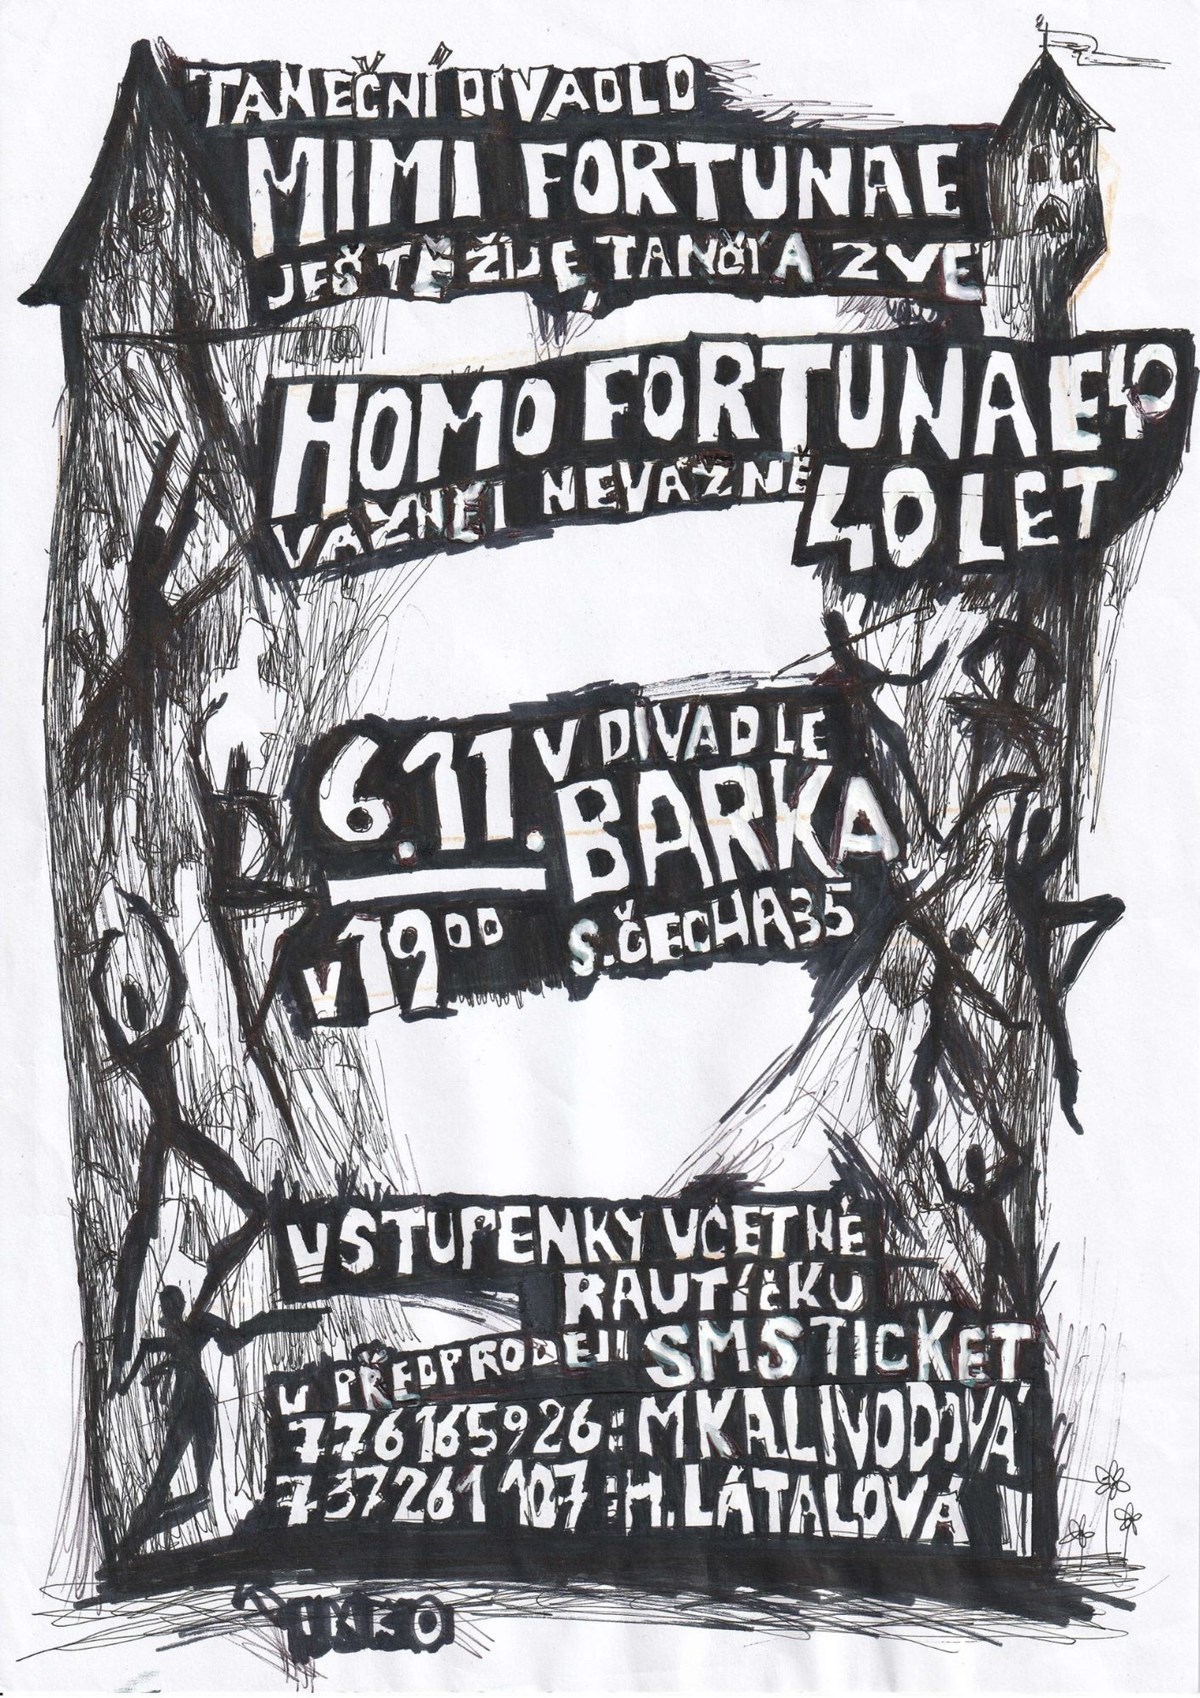 TANEČNÍ DIVADLO
MIMI FORTUNAE
JEŠTĚ ŽIJE, TANČÍ A ZVE
HOMO FORTUNAE
VÁŽNĚ I NEVÁŽNĚ
40 LET
6.11. V DIVADLE
BARKA
V 19⁰⁰ S. ČECHA 35
VSTUPENKY VČETNĚ
RAUTÍČKU
V PŘEDPRODEJI SMSTICKET
776165926: M KALIVODOVÁ
737261107: H. LÁTALOVÁ